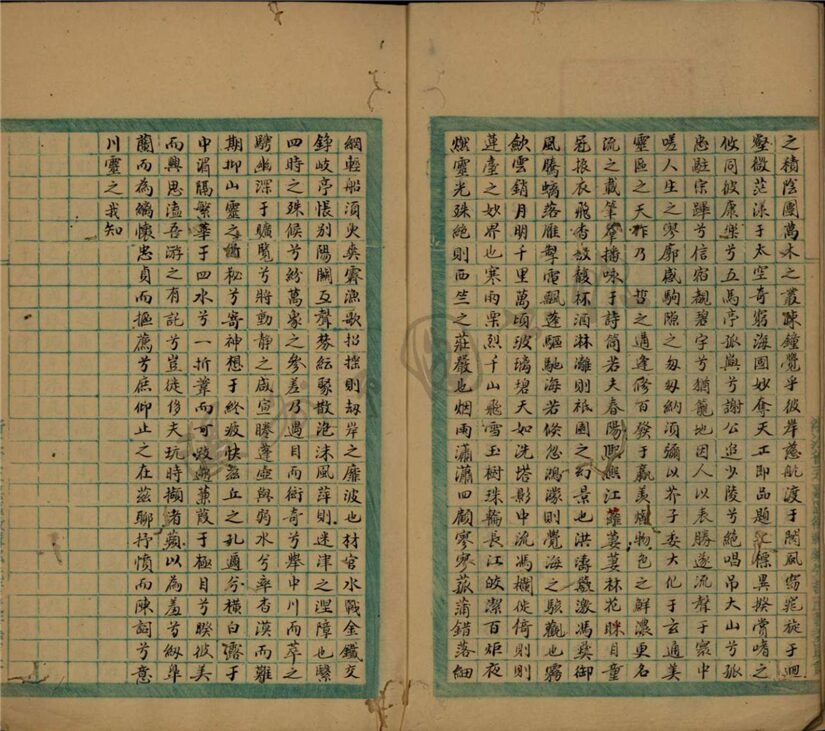 之積陰團萬木之叢疎鐘覺乎彼岸慈航渡于閬風窈窕旋于迴
壑微茫漾于太空奇窮海國妙奪天工即品題之標異揆賞啨之
攸同彼康樂兮五馬亭孤嶼兮謝公追少陵兮絕唱吊大山兮孤
忠駐宗蹕兮信宿覩碧宇兮猶籠地因人以表勝遂流聲于寰中
嗟人生之寥廓感駒隙之匆匆納須彌以芥子委大化于玄通美
靈區之天作乃 哲之遭逢修百發于
美 物色之鮮濃更名
流之載筆 播咏于詩筒若夫春陽熙 江蘺萋萋林花眯目童
冠振衣飛香 馥杯酒淋漓則祇園之幻景也洪濤 激馮夷御
風騰螭落雁掣電飄蓬驅馳海若倏忽鴻濛則覺海之駭觀也霧
斂雲銷月明千里萬頃波璃碧天如洗塔影中流馮欄徙倚則
蓮臺之妙界也寒雨栗烈千山飛雪玉樹珠輪長江皎潔百炬夜
燃靈光殊絕則西竺之莊嚴也烟雨瀟瀟四顧寥寥菰蒲錯落細
網輕船須臾奕霽漁歌招搖則劫岸之靡波也材官水戰金鐵交
錚岐亭悵別陽關互聲棼紜聚散泡沫風萍則迷津之湼障也繄
四時之殊候兮紛萬象之參差乃遇目而衒奇兮舉中川而萃之
騁幽深于曠覽兮將動靜之咸宣勝蓬壺與弱水兮率杳漠而難
期抑山靈之 秘兮寄神想于終疲快茲丘之孔邇兮橫白露于
中湄隔繁華于四水兮一折葦而可
蒹葭于極目兮睽彼美
而興思溘吾游之有託兮豈徒侈夫玩時擷渚蘋以為羞兮紉皐
蘭而為纕懷忠貞而摳薦兮庶仰止之在茲聊抒憤而陳詞兮意
川靈之我知